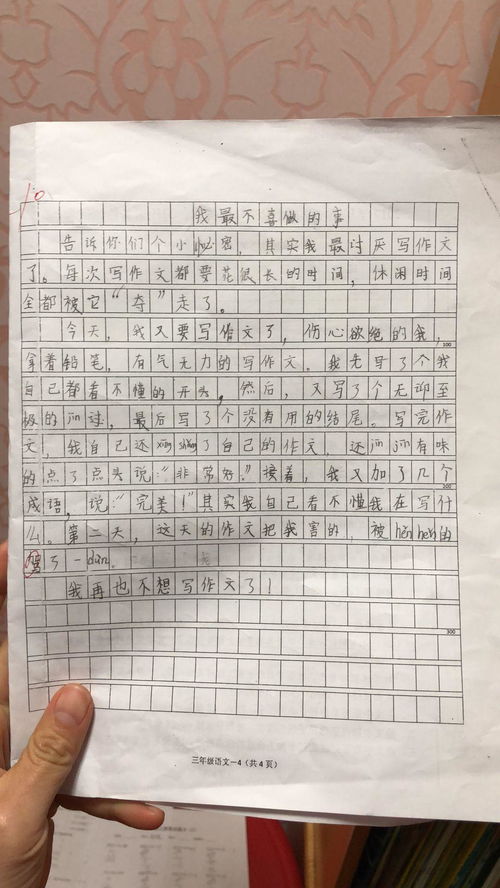 我最不喜做的事
告诉你们个小秘密，其实我最讨厌写作文
了。每次写作文都要花很长的时间，休闲时间
全都被它“夺”走了。
今天，我又要写作文了，伤心欲绝的我，
拿着铅笔，有气无力的写作文。我先写了个我
自己都看不懂的开头，然后，又写了个无聊至
极的jīn过，最后写了个没有用的结尾。写完作
文，我自己还xīng shǎng了自己的作文，还jīn jīn有味
的点了点头说：“非常好。”接着，我又加了几个
成语，说：“完美！”其实我自己看不懂我在写什
么。第二天，这天的作文把我害的，被hěn hěn的
骂了一dùn。
我再也不想写作文了！
100
200
300
三年级语文—4（共4页）